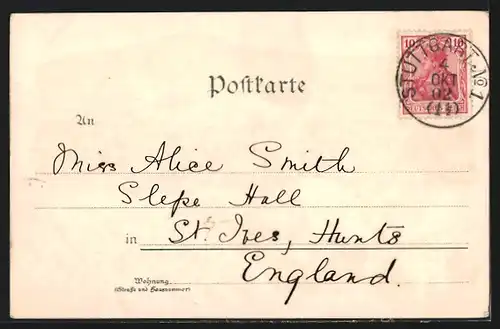 10 10
STUTTGART No 1
4
OKT
02
Postkarte
An
Miss Alice Smith
Slepe Hall
in St. Ives, Hunts
England.
Wohnung
(Straße und Hausnummer)